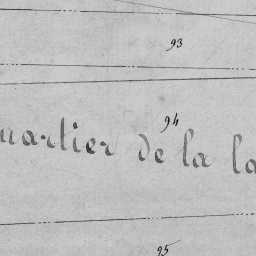 93
94
uartier de la la
95